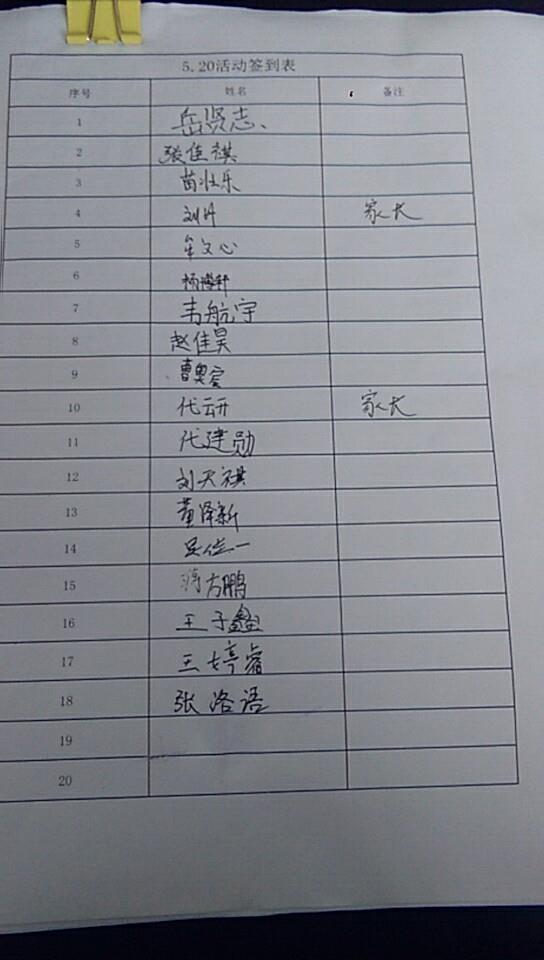 5.20活动签到表
序号 姓名 备注
1 岳贤志、
2 张佳祺
3 苗壮乐
4 刘丹 家长
5 牟文心
6 杨博轩
7 韦航宇
8 赵佳昊
9 曹
10 代云研 家长
11 代建勋
12 刘天祺
13 董泽新
14 一
15 蒋方鹏
16 王子鑫
17 王婷睿
18 张洛语
19
20